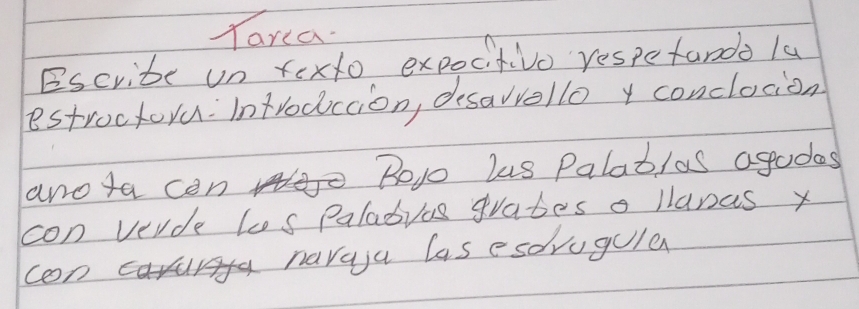 Tarea.
Escribe un texto expocitivo respetando la
estructura: Introducción, desarrollo y conclución
anota con Rojo las Palabras agudas
con verde las Palabras grabes o llanas y
con naraja las esdrugula